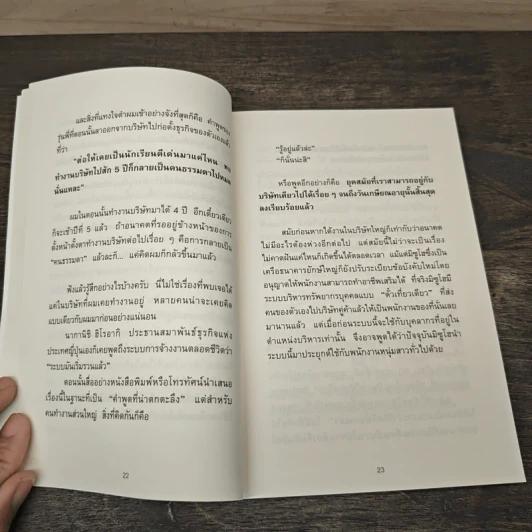 และสิ่งที่แทงใจดำผมเข้าอย่างจังที่สุดก็คือ คำพูดของ
รุ่นพี่ที่ตอนนั้นลาออกจากบริษัทไปก่อตั้งธุรกิจของตัวเองแล้ว
ที่ว่า
"ต่อให้เคยเป็นนักเรียนดีเด่นมาแต่ไหน พอ
ทำงานบริษัทไปสัก 5 ปีก็กลายเป็นคนธรรมดาไปหมด
นั่นแหละ"
ผมในตอนนั้นทำงานบริษัทมาได้ 4 ปี อีกเดี๋ยวเดียว
ก็จะเข้าปีที่ 5 แล้ว ถ้าอนาคตที่รออยู่ข้างหน้าของการ
ตั้งหน้าตั้งตาทำงานบริษัทต่อไปเรื่อย ๆ คือการกลายเป็น
"คนธรรมดา" แล้วละก็... แค่คิดผมก็กลัวขึ้นมาแล้ว
ฟังแล้วรู้สึกอย่างไรบ้างครับ นี่ไม่ใช่เรื่องที่พบเจอได้
แค่ในบริษัทที่ผมเคยทำงานอยู่ หลายคนน่าจะเคยคิด
แบบเดียวกับผมมาก่อนอย่างแน่นอน
นากานิชิ ฮิโรอากิ ประธานสมาพันธ์ธุรกิจแห่ง
ประเทศญี่ปุ่นเองก็เคยพูดถึงระบบการจ้างงานตลอดชีวิตว่า
"ระบบมันเริ่มรวนแล้ว"
ตอนนั้นสื่ออย่างหนังสือพิมพ์หรือโทรทัศน์นำเสนอ
เรื่องนี้ในฐานะที่เป็น "คำพูดที่น่าตกตะลึง" แต่สำหรับ
คนทำงานส่วนใหญ่ สิ่งที่คิดกันก็คือ
22
"รู้อยู่แล้วล่ะ"
"ก็นั่นน่ะสิ"
หรือพูดอีกอย่างก็คือ ยุคสมัยที่เราสามารถอยู่กับ
บริษัทเดียวไปได้เรื่อย ๆ จนถึงวันเกษียณอายุนั้นสิ้นสุด
ลงเรียบร้อยแล้ว
สมัยก่อนหากได้งานในบริษัทใหญ่ก็เท่ากับว่าอนาคต
ไม่มีอะไรต้องห่วงอีกต่อไป แต่สมัยนี้ไม่ว่าจะเป็นเรื่อง
ไม่คาดฝันแค่ไหนก็เกิดขึ้นได้ตลอดเวลา แม้แต่มิซูโฮซึ่งเป็น
เครือธนาคารยักษ์ใหญ่ก็ยังปรับระเบียบข้อบังคับใหม่โดย
อนุญาตให้พนักงานสามารถทำอาชีพเสริมได้ ที่จริงมิซูโฮมี
ระบบบริหารทรัพยากรบุคคลแบบ "ตั๋วเที่ยวเดียว" ที่ส่ง
คนของตัวเองไปบริษัทคู่ค้าแล้วให้เป็นพนักงานของที่นั่นเลย
มานานแล้ว แต่เมื่อก่อนระบบนี้จะใช้กับบุคลากรที่อยู่ใน
ตำแหน่งบริหารเท่านั้น จึงอาจพูดได้ว่าปัจจุบันมิซูโฮนำ
ระบบนี้มาประยุกต์ใช้กับพนักงานหนุ่มสาวทั่วไปด้วย
23